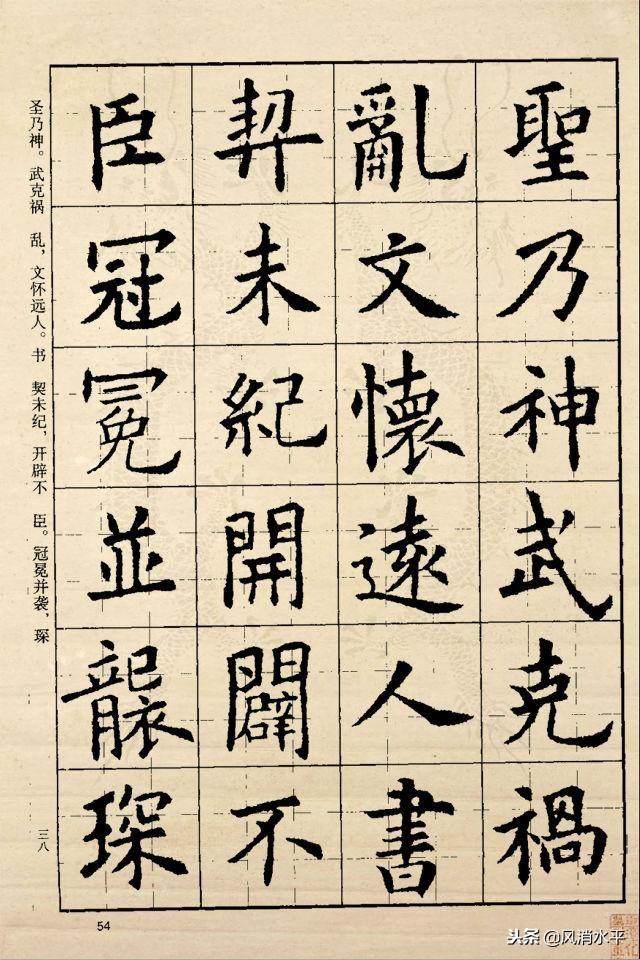 聖乃神武克禍
亂文懷遠人書
契未紀開闢不
臣冠冕並襲琛
圣乃神。武克祸 乱，文怀远人。书 契未纪，开辟不 臣。冠冕并袭，琛
三八
54
头条@风消水平